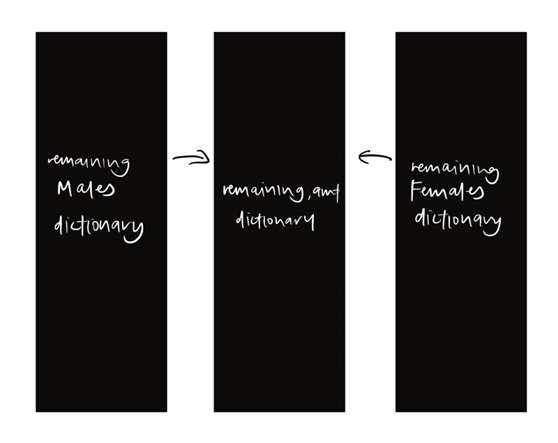 remaining
Males
dictionary
remaining_amt
dictionary
remaining
Females
dictionary